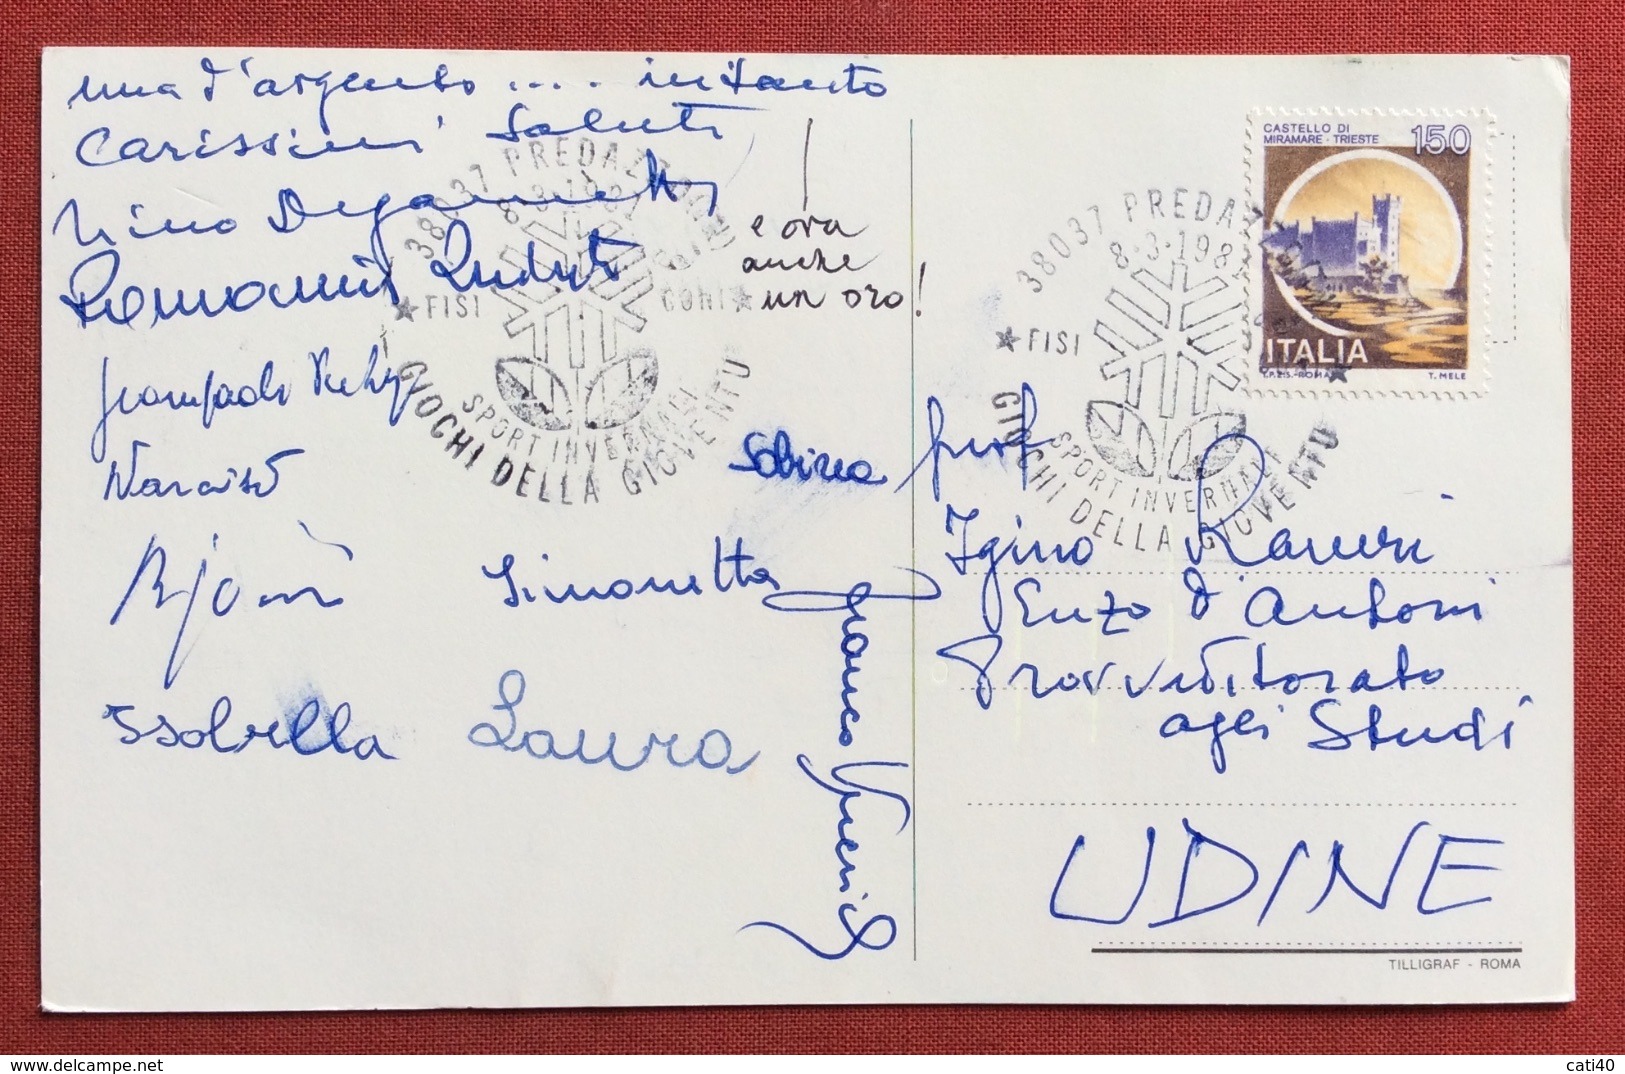 una d'argento .... intanto
Carissimi Saluti
Nino Deganutti
e ora
anche
un oro!
Narciso
Simonetta
Sabina
Isabella
Laura
Franco
38037 PREDAZZO
8·3·198
★ FISI
CONI ★
SPORT INVERNALI
GIOCHI DELLA GIOVENTU
38037 PREDAZ
8·3·198
★ FISI
SPORT INVERNALI
GIOCHI DELLA GIOVENTU
CASTELLO DI
MIRAMARE - TRIESTE
150
ITALIA
I.P.Z.S.-ROMA
T. MELE
prof
Igino Ranieri
Enzo d'Antoni
Provveditorato
agli Studi
UDINE
TILLIGRAF - ROMA
cati40